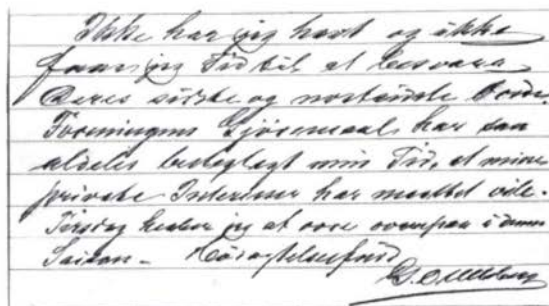 Ikke har jeg havt og ikke
faar jeg Tid til at besvare
Deres sidste og
Foreningens Gjøremaal har saa
aldeles beslaglagt min Tid, at mine
private Interesser har maattet vike.
Tirsdag haaber jeg at være ovenpaa i denne
Saison. Høiagtelsesfuld